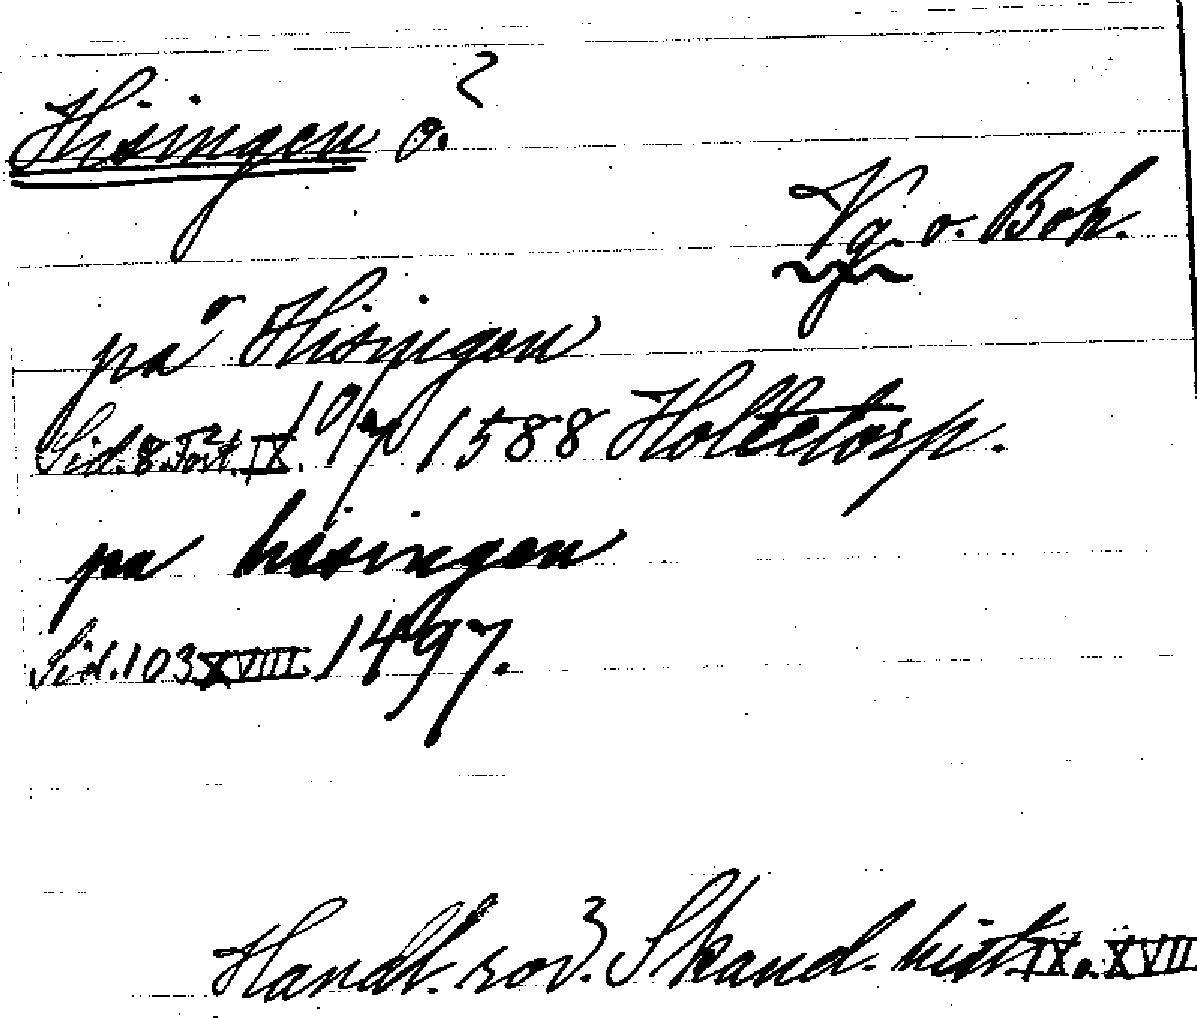 Hisingen ö.
Vg. o. Boh.
på Hisingen
Sid. 8. Fört. IX. 10/7 1588 Holletorp.
pa hisingen
Sid. 103 XVIII. 1497.
Handl. rör. Skand. hist. IX o. XVIII